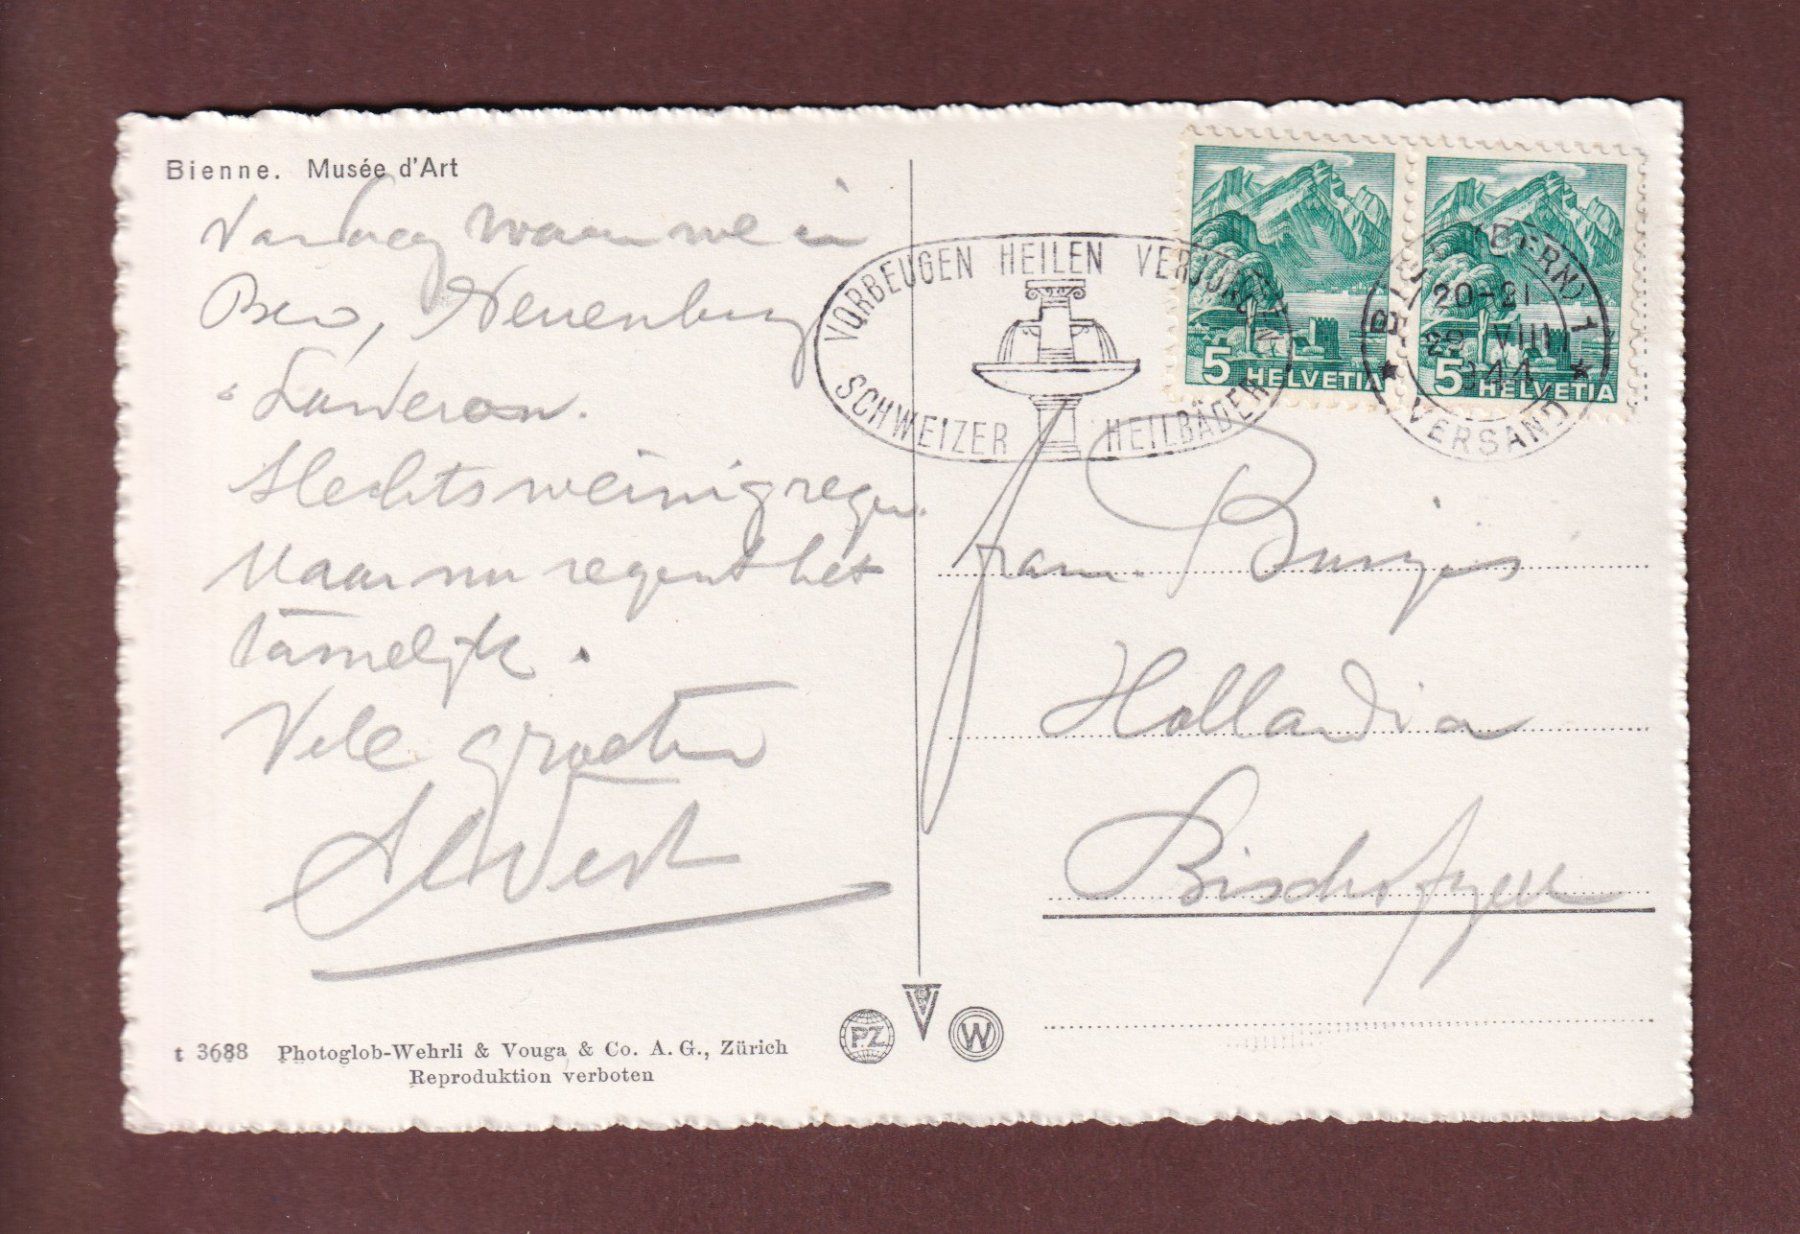 Bienne. Musée d'Art
Vandaag waren we in
Neuenburg
Landeron.
Slechts weinig regen.
Maar nu regent het
tamelijk.
Vele groeten
VORBEUGEN HEILEN VERJÜNGEN
SCHWEIZER HEILBÄDER
5 HELVETIA
5 HELVETIA
(BERN) 1
20-21
29 VIII
VERSAND
Hollandia
Bischofszell
t 3688 Photoglob-Wehrli & Vouga & Co. A. G., Zürich
Reproduktion verboten
PZ
V
W